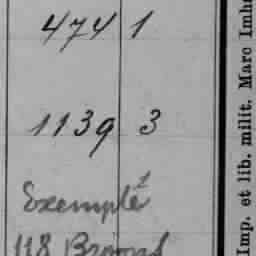 474 1
1139 3
Exemple
118
Imp. et lib. milit. Marc Imh